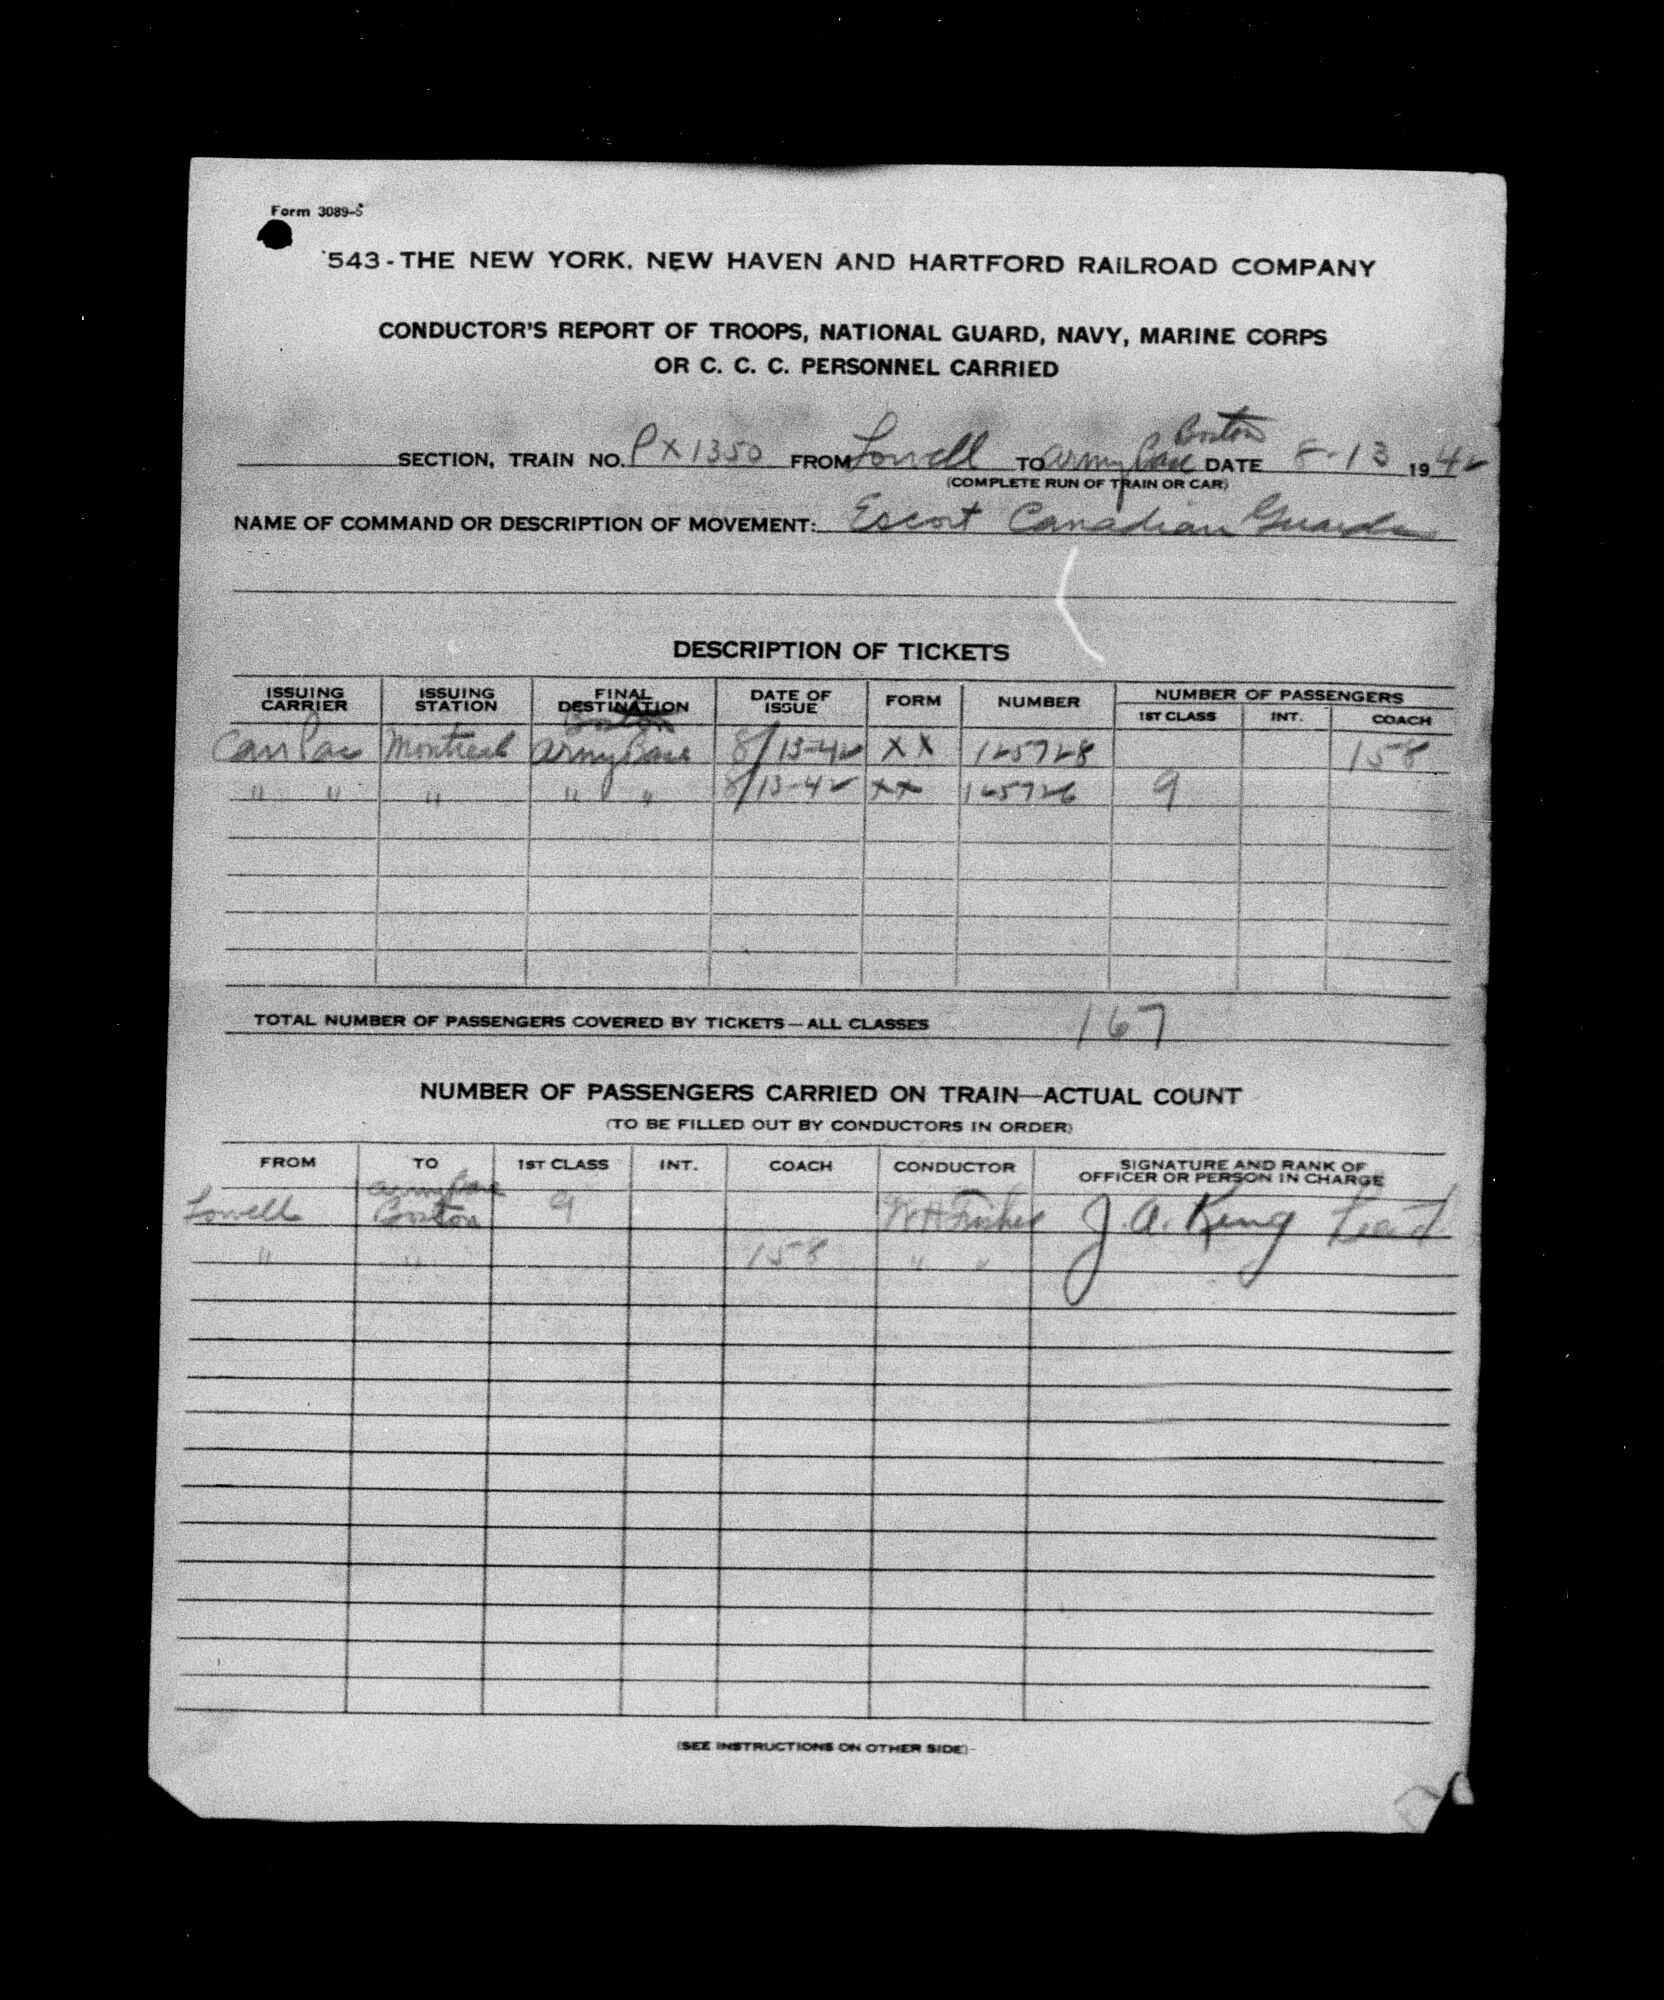 Form 3089-S
543-THE NEW YORK, NEW HAVEN AND HARTFORD RAILROAD COMPANY
CONDUCTOR'S REPORT OF TROOPS, NATIONAL GUARD, NAVY, MARINE CORPS
OR C. C. C. PERSONNEL CARRIED
Boston
SECTION, TRAIN NO. PX1350 FROM Lowell TO Army Base DATE 8-13 1942
(COMPLETE RUN OF TRAIN OR CAR)
NAME OF COMMAND OR DESCRIPTION OF MOVEMENT: Escort Canadian Guards
DESCRIPTION OF TICKETS
ISSUING CARRIER ISSUING STATION FINAL DESTINATION DATE OF ISSUE FORM NUMBER NUMBER OF PASSENGERS
1ST CLASS INT. COACH
Boston
Can Pac Montreal Army Base 8/13-42 XX 125728 158
" " " " " 8/13-42 XX 125726 9
TOTAL NUMBER OF PASSENGERS COVERED BY TICKETS—ALL CLASSES 167
NUMBER OF PASSENGERS CARRIED ON TRAIN—ACTUAL COUNT
(TO BE FILLED OUT BY CONDUCTORS IN ORDER)
FROM TO 1ST CLASS INT. COACH CONDUCTOR SIGNATURE AND RANK OF OFFICER OR PERSON IN CHARGE
Army Base
Lowell Boston 9 J. A. King
" " 158 " "
(SEE INSTRUCTIONS ON OTHER SIDE)